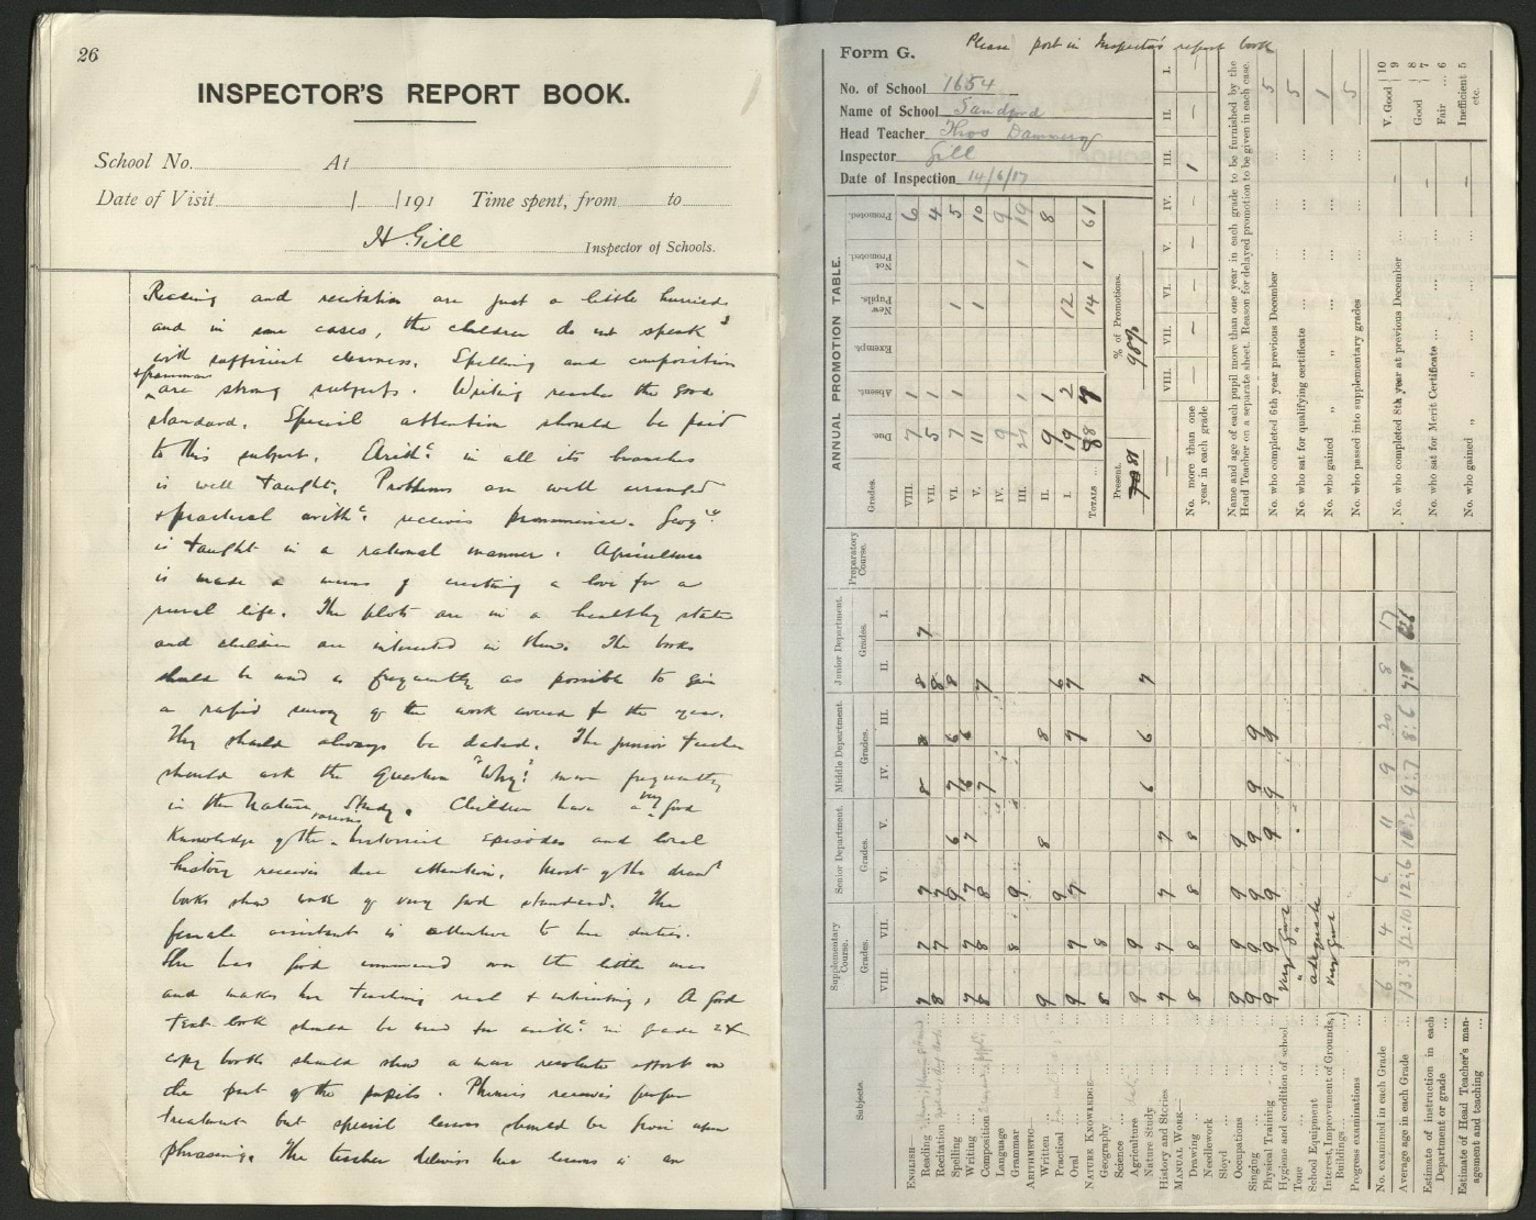 26
INSPECTOR'S REPORT BOOK.
School No. At
Date of Visit | |191 Time spent, from to
H Gill Inspector of Schools.
Reading and recitation are just a little hurried
and in some cases, the children do not speak
with sufficient clearness. Spelling and composition
+ grammar
are strong subjects. Writing reaches the good
standard. Special attention should be paid
to this subject. Arithc in all its branches
is well taught. Problems are well arranged
+ practical arithc receives prominence. Geogy
is taught in a rational manner. Agriculture
is made a means of creating a love for a
rural life. The plots are in a healthy state
and children are interested in them. The books
should be used as frequently as possible to give
a rapid survey of the work covered for the year.
They should always be dated. The junior teacher
should ask the question "Why?" more frequently
in the Nature Study. Children have a very good
knowledge of the various historical episodes and local
history receives due attention. Most of the drawg
books show work of very good standard. The
female assistant is attentive to her duties.
She has good command over the little ones
and makes her teaching real + interesting. A good
text book should be used for arithc in grade 2 +
copy books should show a more resolute effort on
the part of the pupils. Phonics receives proper
treatment but special lessons should be given upon
phrasing. The teacher delivers her lessons in an
Please post in Inspector's report book
Form G.
No. of School 1654
Name of School Sandford
Head Teacher Thos
Inspector Gill
Date of Inspection 14/6/17
ANNUAL PROMOTION TABLE.
Grades. Due. Absent. Exempt. New Pupils. Not Promoted. Promoted.
VIII. 7 1 6
VII. 5 1 4
VI. 7 1 1 5
V. 11 1 10
IV. 9 9
III. 21 1 1 19
II. 9 1 8
I. 19 2 12
TOTALS ... 88 7 14 1 61
Present. 81
% of Promotions. 98%
VIII. VII. VI. V. IV. III. II. I.
No. more than one year in each grade — — — — — 1 — —
Name and age of each pupil more than one year in each grade to be furnished by the
Head Teacher on a separate sheet. Reason for delayed promotion to be given in each case.
No. who completed 6th year previous December ... 5
No. who sat for qualifying certificate ... 5
No. who gained " " ... 1
No. who passed into supplementary grades ... 5
No. who completed 8th year at previous December —
No. who sat for Merit Certificate ... —
No. who gained " " ... —
V. Good 10 9
Good 8 7
Fair ... 6
Inefficient 5 etc.
Subjects.
Supplementary Course. Grades. VIII. VII.
Senior Department. Grades. VI. V.
Middle Department. Grades. IV. III.
Junior Department. Grades. II. I.
Preparatory Course.
ENGLISH—
Reading ... 7 7 7 8 8 8 7
Recitation 8 7 7 8
Spelling ... 9 6 7 6 8
Writing ... 7 7 7 7 6 6
Composition 8 8 8 7 7
Language ...
Grammar ... 8 9
ARITHMETIC—
Written ... 9 8 8
Practical 9 6
Oral ... 9 7 7 7 7
NATURE KNOWLEDGE—
Geography ... 8 8
Science ...
Agriculture ... 9 9
Nature Study ... 6 6 7
History and Stories 7 7 7 7
MANUAL WORK—
Drawing ... 8 8 8 8
Needlework ...
Sloyd ...
Occupations ... 9 9 9 9
Singing ... 9 9 9 9 9 9
Physical Training 9 9 9 9 9 9
Hygiene and condition of school ... very good
Tone ... "
School Equipment ... adequate
Interest, Improvement of Grounds, Buildings ... very good
Progress examinations
No. examined in each Grade 6 4 6 11 9 20 8 17
Average age in each Grade 13:3 12:10 12:6 10:2 9:7 8:6
Estimate of instruction in each Department or grade
Estimate of Head Teacher's management and teaching